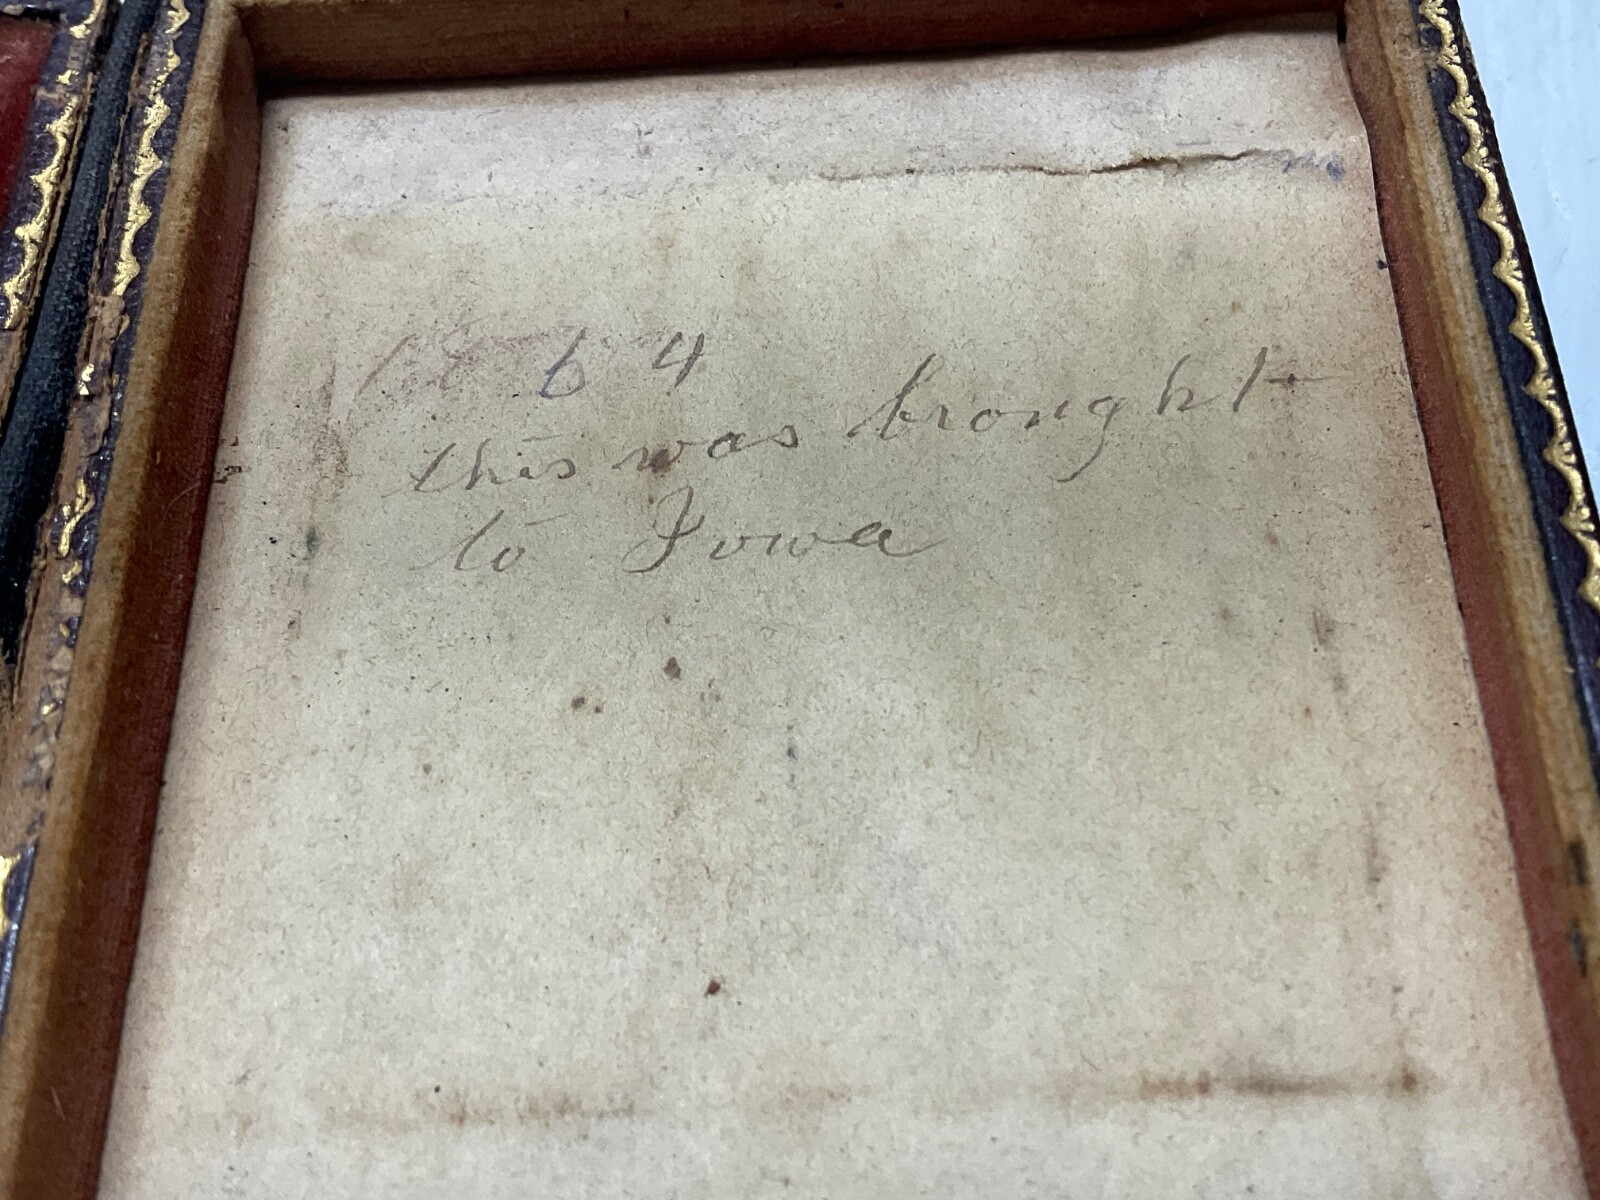 1864
this was brought
to Iowa